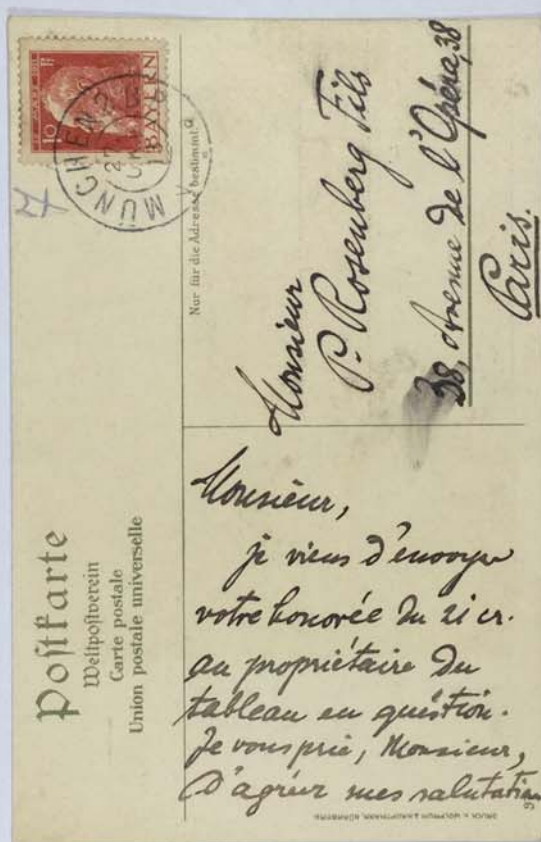 Postkarte
Weltpostverein
Carte postale
Union postale universelle
10
BAYERN
MÜNCHEN 2
Nur für die Adresse bestimmt
Monsieur
P. Rosenberg Fils
38, Avenue de l'Opéra, 38
Paris.
Monsieur,
je viens d'envoyer
votre honorée du 21 cr.
au propriétaire du
tableau en quéstion.
Je vous prie, Monsieur,
d'agréer mes salutations